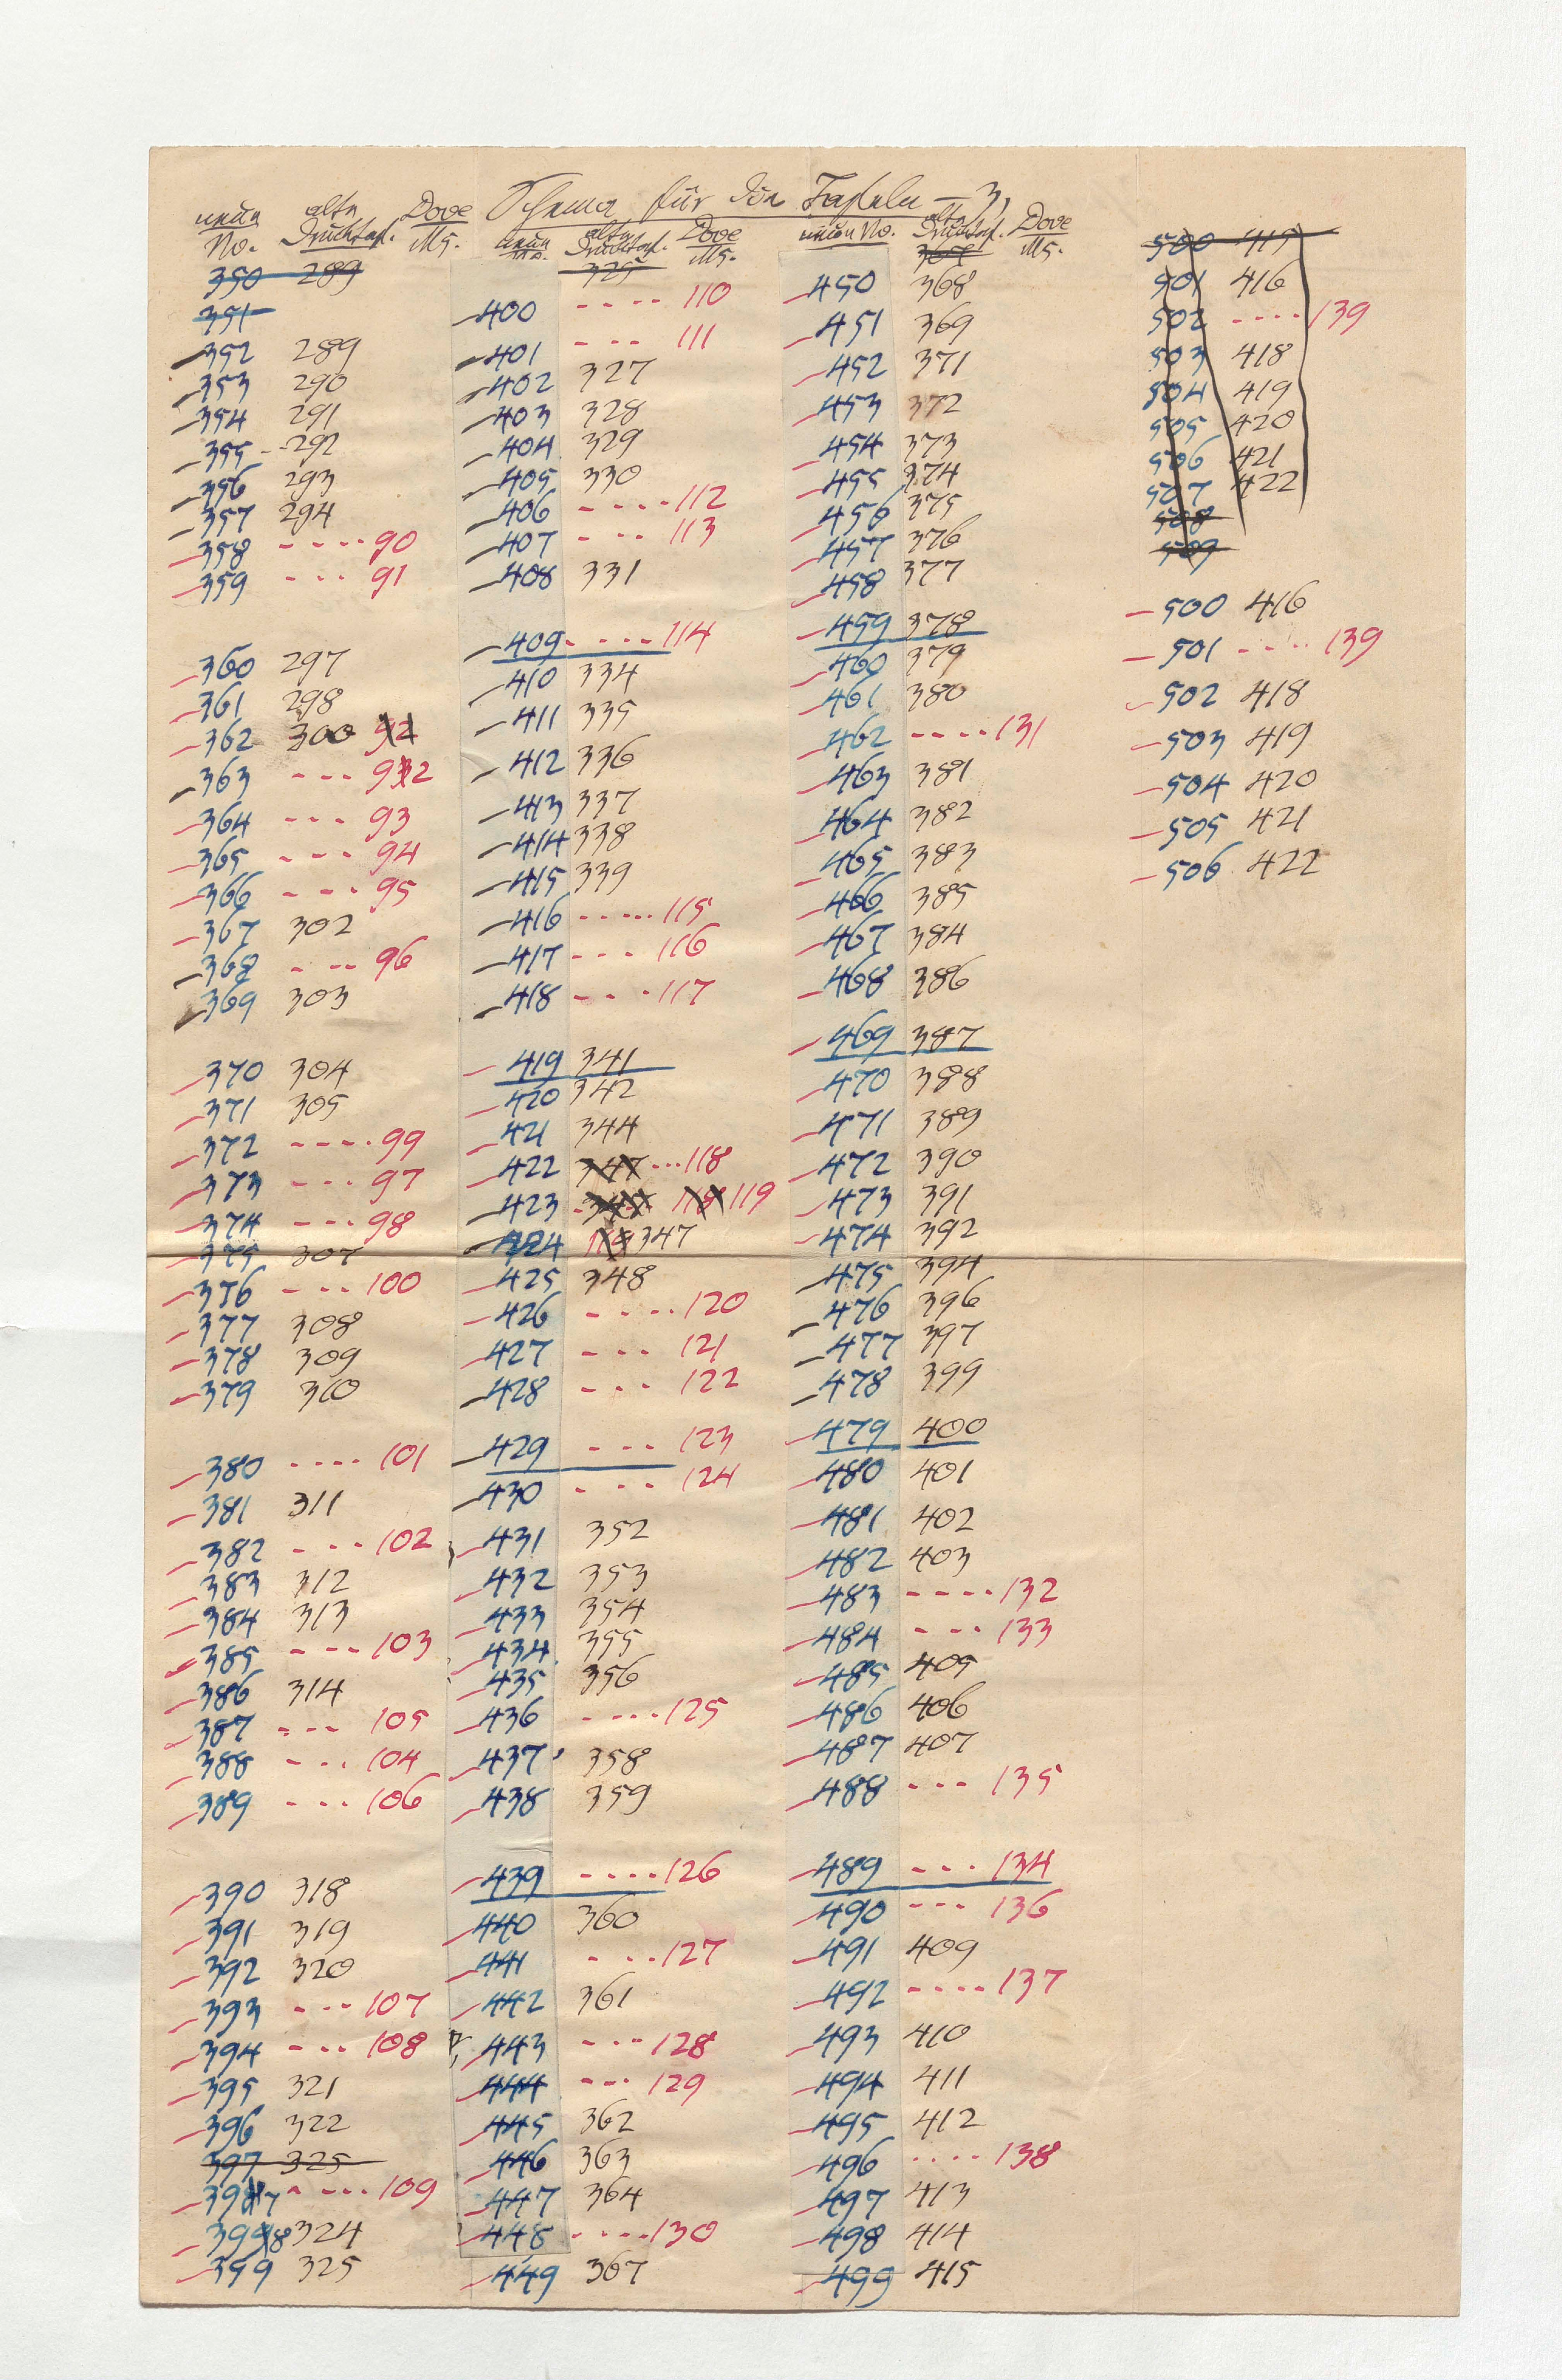 Schema für die Tafeln — 3,
neue No. alte Drucktaf. Dove Ms.
350 289
351
352 289
353 290
354 291
355 - 292
356 293
357 294
358 - - - - 90
359 - - - 91
360 297
361 298
362 300 92
363 - - - 932
364 - - - 93
365 - - - 94
366 - - - 95
367 302
368 - - - 96
369 303
370 304
371 305
372 - - - - 99
373 - - - 97
374 - - - 98
375 307
376 - - - 100
377 308
378 309
379 310
380 - - - - 101
381 311
382 - - - 102
383 312
384 313
385 - - - 103
386 314
387 - - - 105
388 - - - 104
389 - - - 106
390 318
391 319
392 320
393 - - - 107
394 - - - 108
395 321
396 322
397 325
3987 - - - - 109
3998 324
399 325
neue No. alte Drucktaf. Dove Ms.
325
400 - - - - 110
401 - - - 111
402 327
403 328
404 329
405 330
406 - - - - 112
407 - - - 113
408 331
409 - - - - 114
410 334
411 335
412 336
413 337
414 338
415 339
416 - - - - - 115
417 - - - 116
418 - - - 117
419 341
420 342
421 344
422 347 - - - 118
423 118 119
424 119 347
425 348
426 - - - - 120
427 - - - 121
428 - - - 122
429 - - - 123
430 - - - 124
431 352
432 353
433 354
434 355
435 356
436 - - - - 125
437 358
438 359
439 - - - - 126
440 360
441 - - - 127
442 361
443 - - - 128
444 - - - 129
445 362
446 363
447 364
448 - - - - 130
449 367
neue No. alte Drucktaf. Dove Ms.
450 368
451 369
452 371
453 372
454 373
455 374
456 375
457 376
458 377
459 378
460 379
461 380
462 - - - - 131
463 381
464 382
465 383
466 385
467 384
468 386
469 387
470 388
471 389
472 390
473 391
474 392
475 394
476 396
477 397
478 399
479 400
480 401
481 402
482 403
483 - - - - 132
484 - - - 133
485 405
486 406
487 407
488 - - - 135
489 - - - 134
490 - - - 136
491 409
492 - - - - 137
493 410
494 411
495 412
496 - - - - 138
497 413
498 414
499 415
500 415
501 416
502 - - - - 139
503 418
504 419
505 420
506 421
507 422
508
509
500 416
501 - - - - 139
502 418
503 419
504 420
505 421
506 422